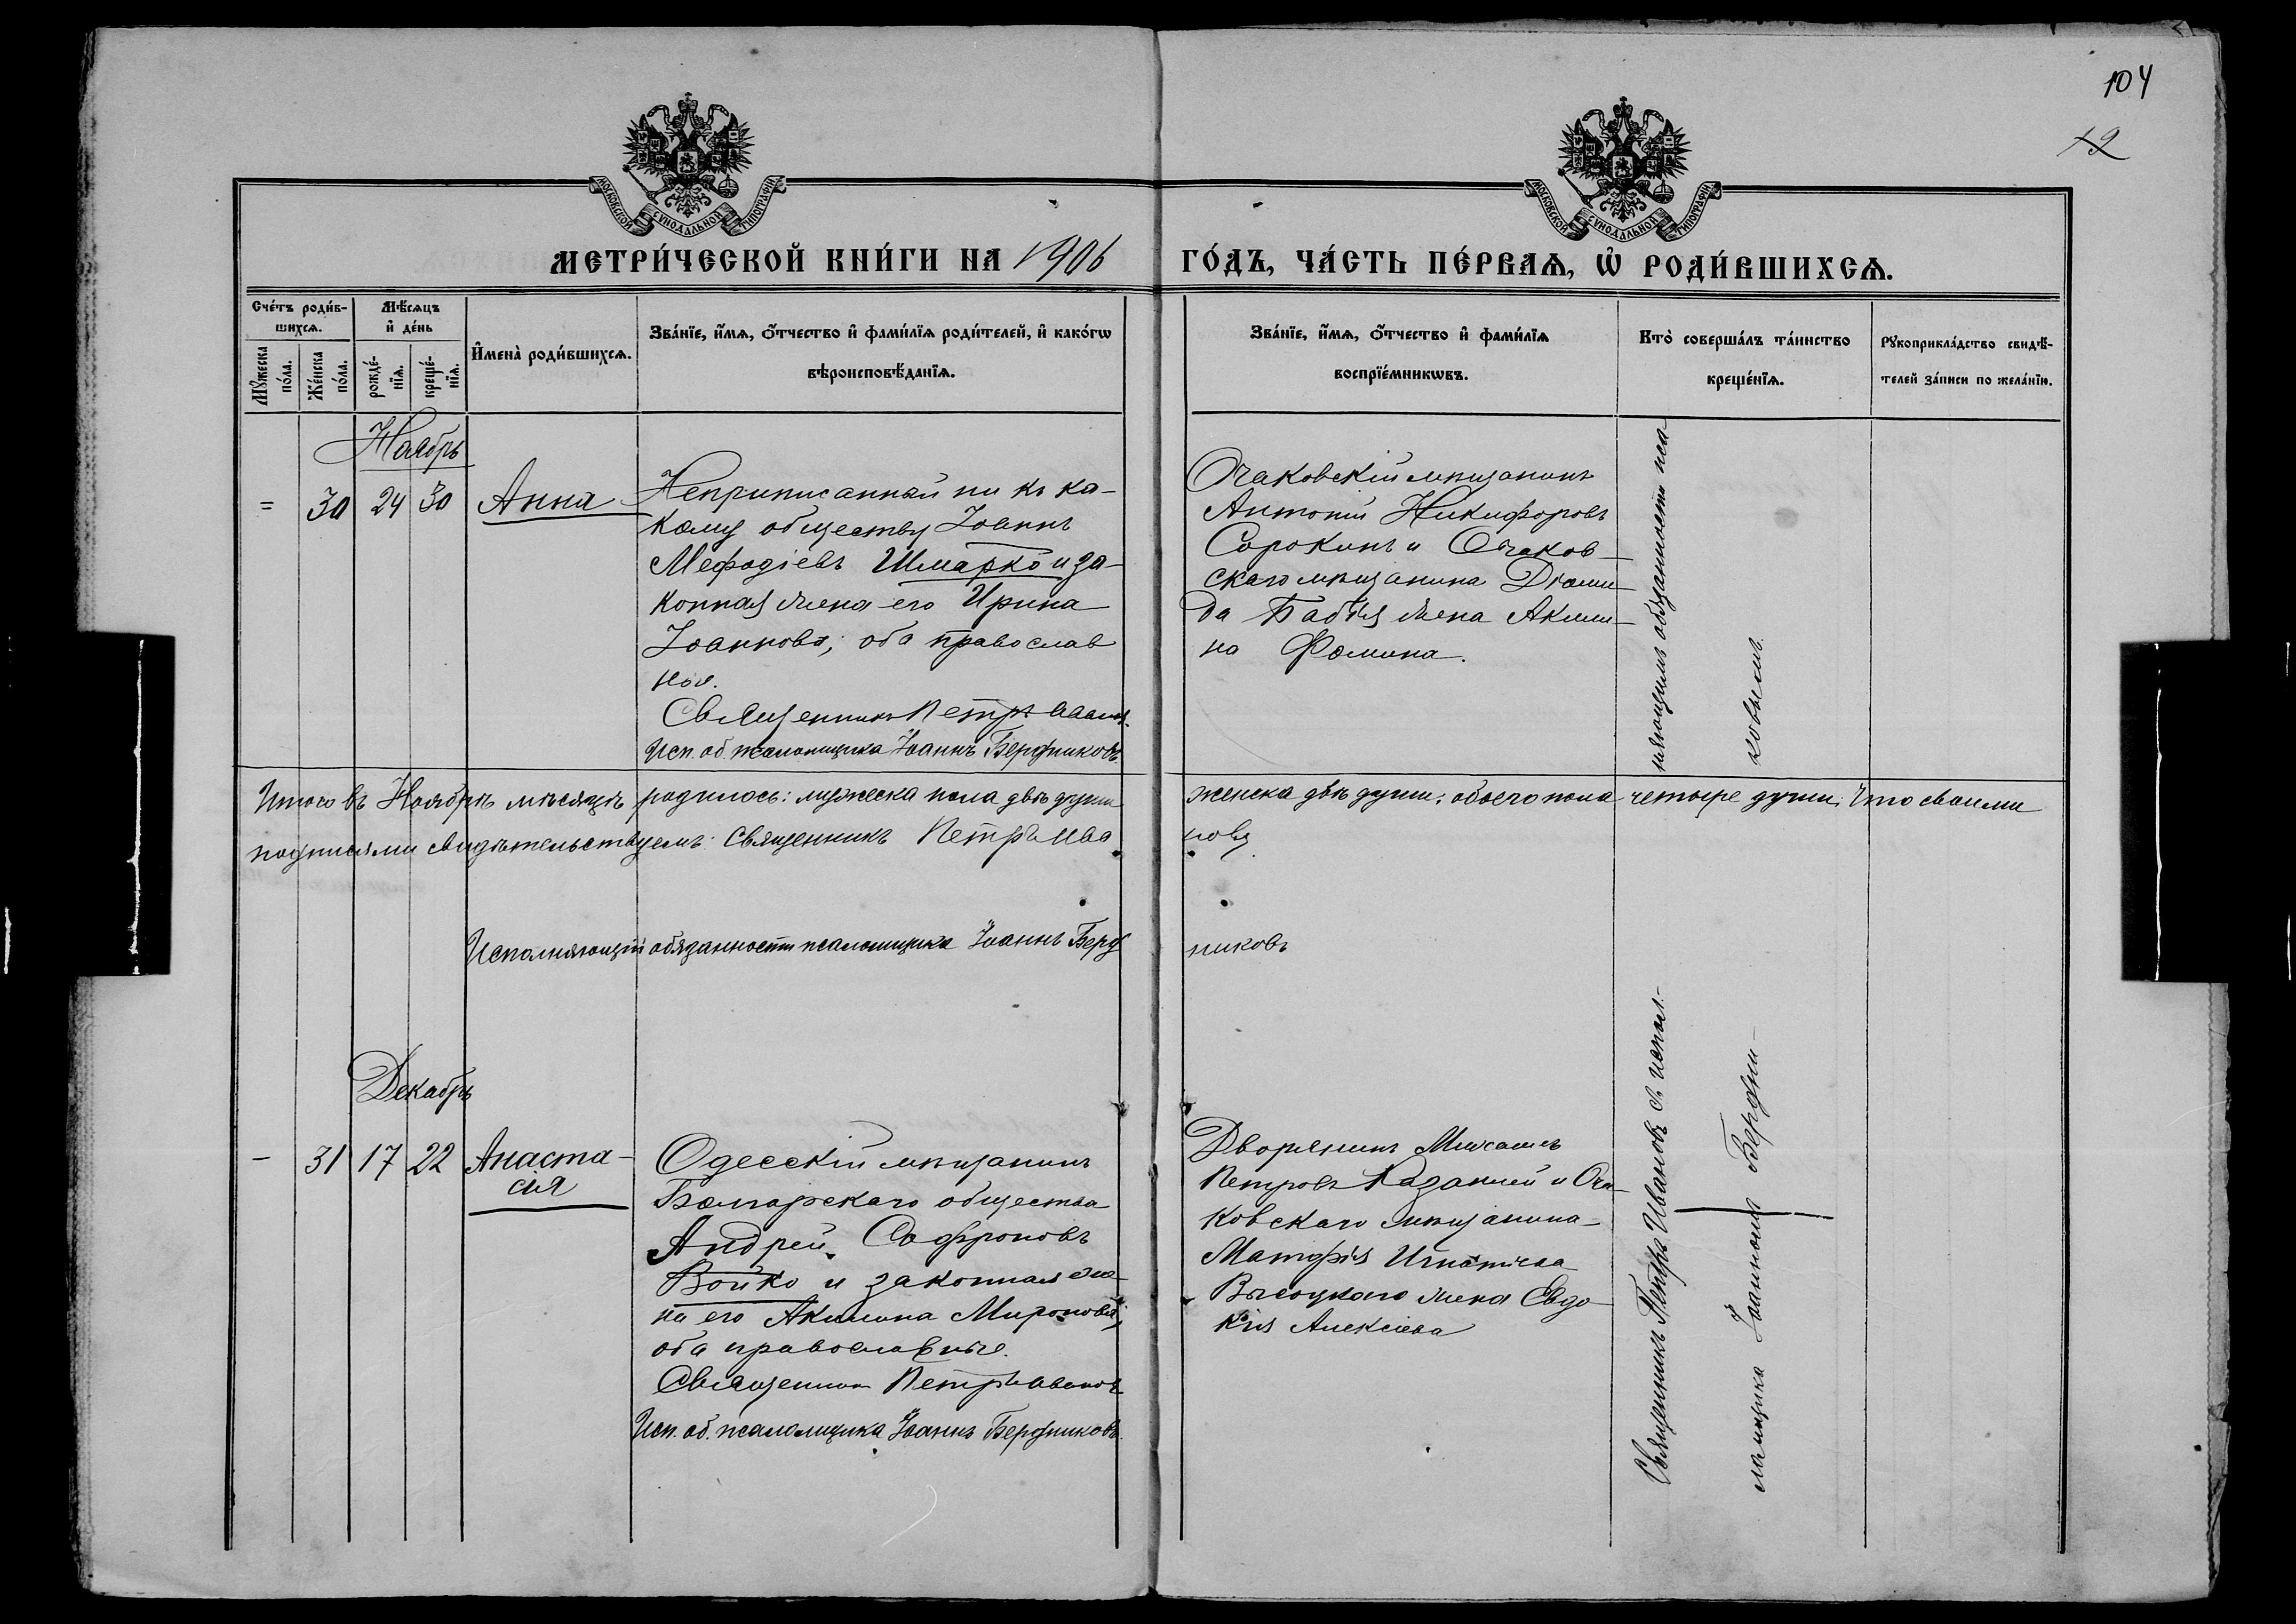 104
12
МОСКОВСКОЙ СѴНОДАЛЬНОЙ ТИПОГРАФІИ
МОСКОВСКОЙ СѴНОДАЛЬНОЙ ТИПОГРАФІИ
МЕТРИ́ЧЕСКОЙ КНИ́ГИ НА 1906 ГО́ДЪ, ЧА́СТЬ ПЕ́РВАѦ, Ѡ҆ РОДИ́ВШИХСѦ.
Сче́тъ роди́в-
шихсѧ.
Мꙋ́жеска по́ла.
Же́нска по́ла.
Мѣ́сѧцъ
и҆ де́нь
рожде́-
нїѧ.
креще́-
нїѧ.
И҆мена̀ роди́вшихсѧ.
Зва́нїе, и҆́мѧ, ѻ҆́тчество и҆ фами́лїѧ роди́телей, и҆ како́гѡ
вѣроисповѣ́данїѧ.
Зва́нїе, и҆́мѧ, ѻ҆́тчество и҆ фами́лїѧ
воспрїе́мникѡвъ.
Кто̀ соверша́лъ та́инство
креще́нїѧ.
Рꙋкоприкла́дство свидѣ́-
телей за́писи по жела́нїю.
Ноябрь
= 30 24 30 Анна
Неприписанный ни къ ка-
кому обществу Іоаннъ
Мефодіевъ Шмарко и за-
конная жена его Ирина
Іоаннова; оба православ
ные.
Священникъ Петръ Ивановъ
Исп. об. псаломщика Іоаннъ Бердниковъ.
Очаковскій мѣщанинъ
Антоній Никифоровъ
Сорокинъ и Очаков-
скаго мѣщанина Діоми-
да Бабія жена Акили-
на Фомина.
Итого въ Ноябрѣ мѣсяцѣ родилось: мужеска пола двѣ души женска двѣ души; обоего пола четыре души. Что своими
подписями свидѣтельствуемъ: Священникъ Петръ Ивановъ
Исполняющій обязанности псаломщика Іоаннъ Бердниковъ
Декабрь
- 31 17 22 Анаста-
сія
Одесскій мѣщанинъ
Болгарскаго общества
Андрей Софроновъ
Бойко и законная же-
на его Акилина Миронова;
оба православные.
Священник Петръ Ивановъ
Исп. об. псаломщика Іоаннъ Бердниковъ.
Дворянинъ Михаилъ
Петровъ Казаклей и Оча-
ковскаго мѣщанина
Матфія Игнатіева
Высоцкаго жена Евдо-
кія Алексіева
Священникъ Петръ Ивановъ съ испол-
няющимъ обязанности пса-
ломщика Іоанномъ Бердни-
ковымъ.